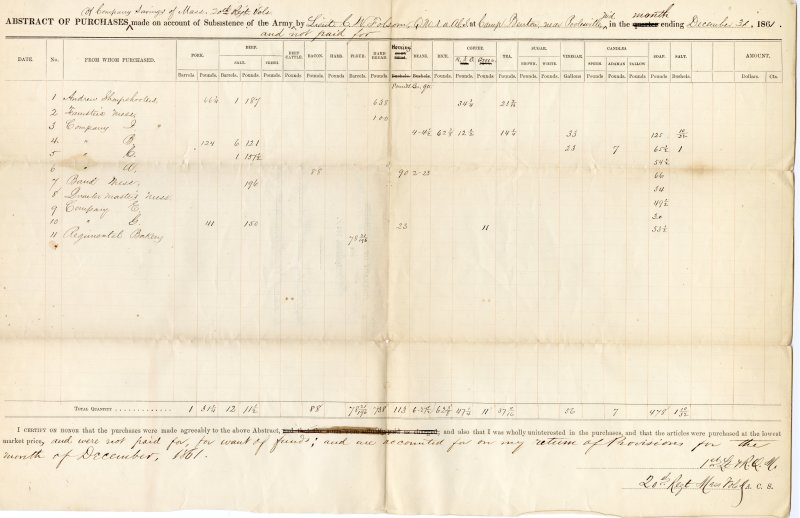 of Company Savings of Mass. 20th Regt Vols
ABSTRACT OF PURCHASES made on account of Subsistence of the Army by Lieut. C. W. Folsom, at Camp Benton, near Poolesville, Md, in the quarter month ending December 31, 1861.
and not paid for
DATE. No. FROM WHOM PURCHASED. PORK. BEEF. BEEF CATTLE. BACON. HAMS. FLOUR. HARD BREAD. Hominy BEANS. RICE. COFFEE. TEA. SUGAR. VINEGAR. CANDLES. SOAP. SALT. AMOUNT.
SALT. FRESH. BROWN. WHITE. SPERM. ADAMAN TALLOW
Barrels. Pounds. Barrels. Pounds. Pounds. Pounds. Pounds. Pounds. Barrels. Pounds. Bushels. Bushels. Pounds. Pounds. Pounds. Pounds. Pounds. Pounds. Gallons Pounds. Pounds. Pounds. Pounds. Bushels. Dollars. Cts.
Pounds
1 Andrew Sharpshooters 66¼ 1 187 638 34¼
2 Teamsters Mess. 100
3 Company I " 33 125
4 " B 124 6 121 23 7 65½ 1
5 " C. 1 157½ 54½
6 " A. 88 90 2-23 66
7 Band Mess. 196 34
8 Quarter masters Mess. 49½
9 Company E 30
10 " G 41 150 23 11 53½
11 Regimental Bakery
TOTAL QUANTITY 1 31¼ 12 11½ 88 738 113 11 56 7 478
I CERTIFY ON HONOR that the purchases were made agreeably to the above Abstract, and also that I was wholly uninterested in the purchases, and that the articles were purchased at the lowest
market price, and were not paid for, for want of funds; and are accounted for on my return of Provisions for the
month of December, 1861.
1st Lt & R.Q.M.
20th Regt Mass Vols A. C. S.